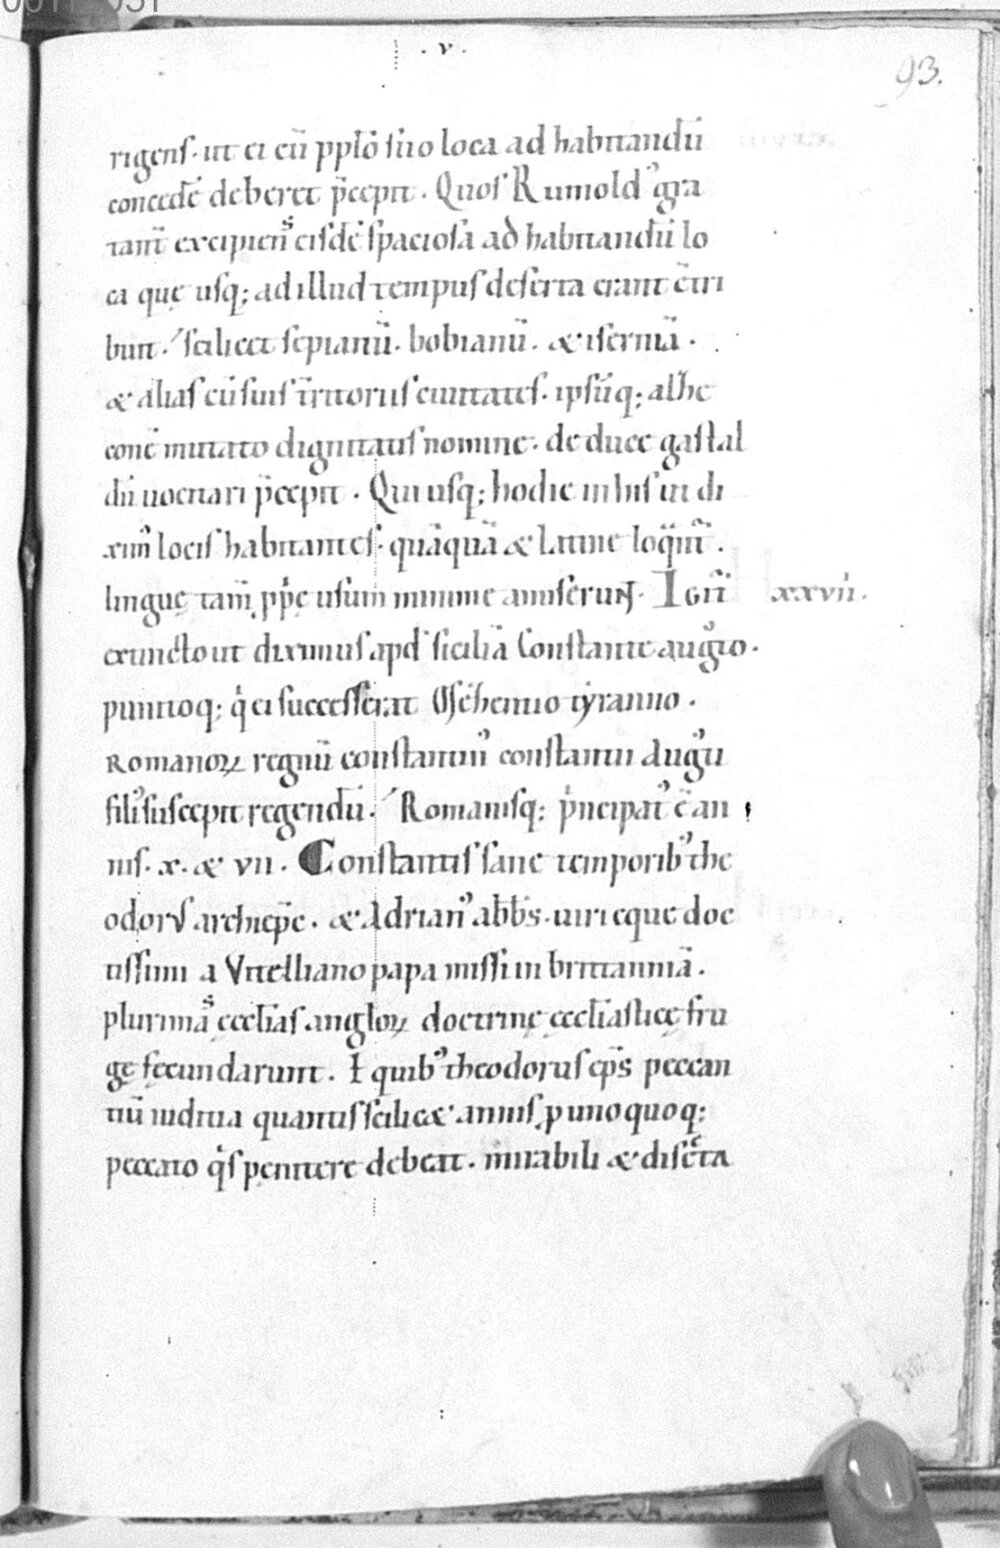 · v ·
93.
rigens· ut ei cū pp̄lo suo loca ad habitandū
concedē deberet p̄cepit · Quos Rumold᾽ gra
tant̄ excipiens eisdē spaciosa ad habitandū lo
ca quę usq; ad illud tempus deserta erant c̄tri
buit · scilicet sepianū · bobianū · & iserniā ·
& alias cū suis t̄ritoriis ciuitates · ipsūq; alhe
conē mutato dignitatis nomine · de duce gastal
dū uocitari p̄cepit · Qui usq; hodie in his ut di
xim᾽ locis habitantes · quāquā & latine loq̄nt̄ ·
linguę tam̄ ꝓp̄ę usum minime amiserunt · Igit̄ xxvii·
extincto ut diximus apd̄ siciliā Constante augusto ·
punitoq; qͥ ei successerat Meszentio tyranno ·
Romanoꝝ regnū constantin᾽ constantii augusti
fili᾽ suscepit regendū · Romanisq; pͥncipat᾽ ē an
nis · x · & vii · Constantis sane temporib᾽ the
odorus archiep̄c · & Adrian᾽ abb̄s · uiri eque doc
tissimi a Vitelliano papa missi in brittanniā ·
plurimas ęccl̄ias angloꝝ doctrinę ęccl̄iasticę fru
gę fęcundarunt · E quib᾽ theodorus ep̄s peccan
tiū iudicia quantis scilic& annis ꝓ unoquoq;
peccato qͥs penitere debeat · mirabili & discͤta